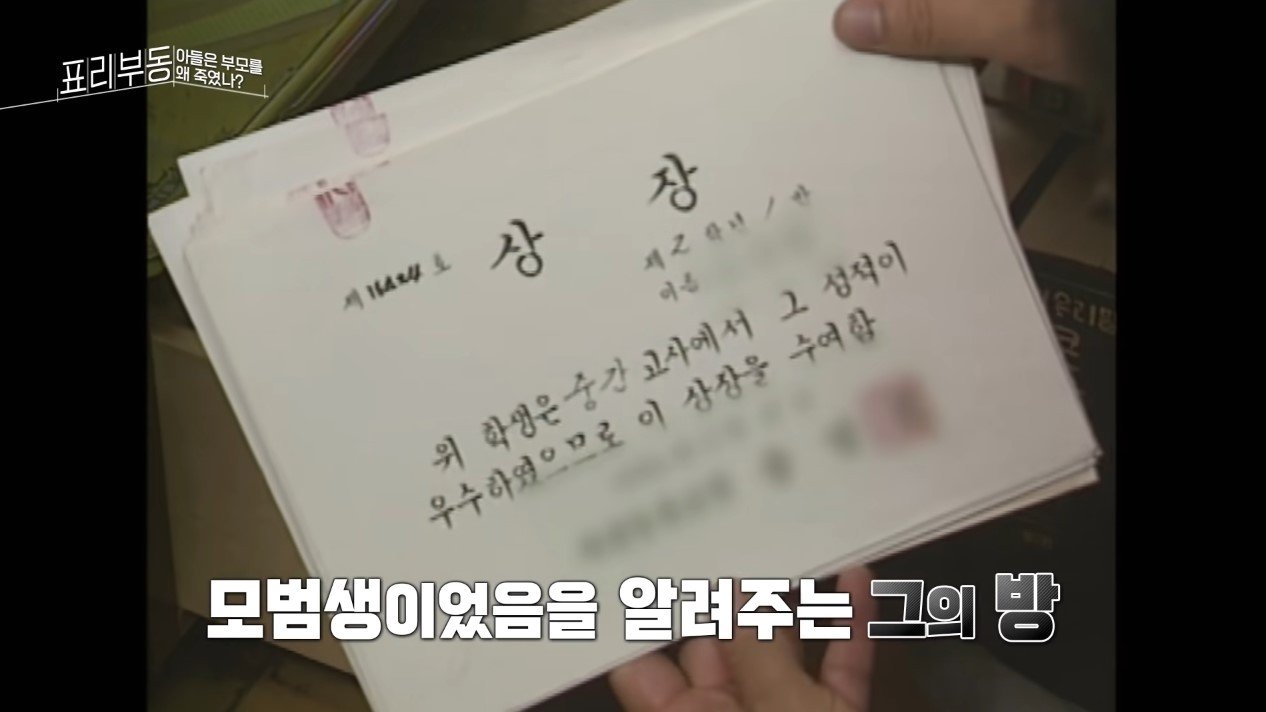 표리부동
아들은 부모를
왜 죽였나?
상 장
제 호
제 2 학년 1 반
이름
위 학생은 중간 고사에서 그 성적이
우수하였으므로 이 상장을 수여함
모범생이었음을 알려주는 그의 방